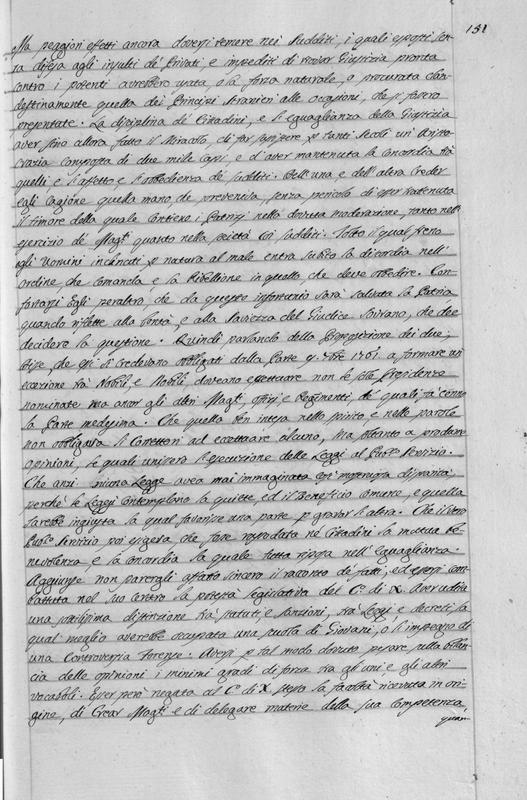 151
Ma peggiori effetti ancora doversi temere nei sudditi, i quali esposti sen-
za difesa agli insulti de' Privati e impediti di trovar Giustizia pronta
contro i potenti avrebbero usata, o la forza naturale, o procurata clan-
destinamente quella dei Principi stranieri alle occasioni, che si fossero
presentate. La disciplina de' Cittadini, e l'eguaglianza della Giustizia
aver sino allora fatto il Miracolo, di far sussistere p tanti secoli un Aristo
crazia composta di due mille Capi, e d'aver mantenuta la concordia trà
quelli e l'affetto e l'obbedienza de' sudditi. Dell'una e dell'altra creder
egli Cagione quella mano che preveniva, senza pericolo di esser rattenuta
il timore della quale contiene i Patrizj nella dovuta moderazione, tanto nell'
esercizio de' Magti quanto nella società coi sudditi. Tolto il qual freno
agli Uomini inclinati p natura al male entra subito la discordia nell'
ordine, che comanda e la Ribellione in quello, che deve obbedire. Con-
fortarsi Egli peraltro che da questo infortunio sarà salvata la Patria
quando riflette alla bontà, e alla saviezza del Giudice Sovrano, che dee
decidere la questione. Quindi parlando della Proposizione dei due,
disse, che se si credevano obbligati dalla Parte 9. Xbre 1761. a formare un
eccezione trà Nobili, e Nobili doveano eccettuare non le sole Presidenze
nominate ma ancor gli altri Magti, offizj e Reggimenti, de' quali fà cenno
la Parte medesima. Che quella ben intesa nello spirito e nelle parole
non obbligava li Correttori ad eccettuare alcuno, ma soltanto a produrre
opinioni, le quali unissero l'esecuzione delle Leggi al Pubco servizio.
Che anzi niuna Legge avea mai immaginata così mostruosa disparità,
perchè le Leggi contemplano la quiete, ed il Beneficio comune, e quella
sarebbe ingiusta la qual favorisse una parte p gravar l'altra. Che il vero
Pubco servizio poi esigeva che fosse rassodata ne' Cittadini la mutua be-
nevolenza e la concordia la quale tutta riposa nell'Eguaglianza.
Aggiunse non parergli affatto sincero il racconto de' fatti, ed essersi com-
battuta nel suo centro la potestà legislativa del C. di X. Aver udita
una sottilissima distinzione trà statuti, e sanzioni, trà Leggi e decreti, la
qual meglio averebbe occupata una scuola di Giovani, o l'impegno di
una Controversia Forense. Aversi p tal modo dovuto pesare sulla bilan-
cia delle opinioni i minimi gradi di forza trà gli uni, e gli altri
vocaboli. Esser però negata al C. di X. stesso la facoltà ricevuta in ori-
gine, di Crear Magti e di delegare materie della sua Competenza,
quan-